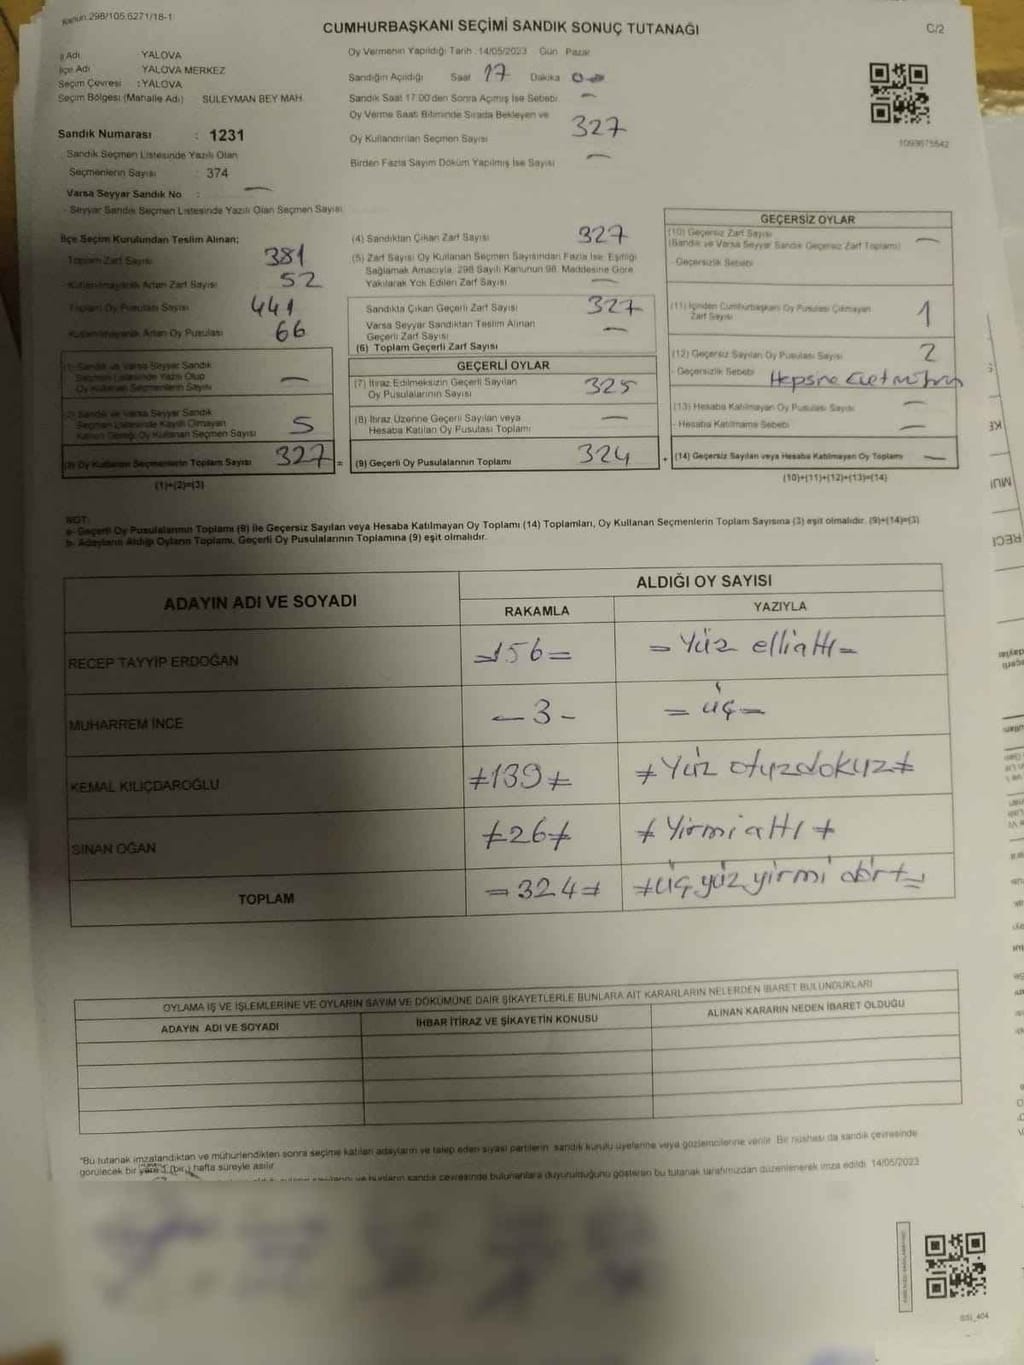 Kanun:298/105,6271/18-1
CUMHURBAŞKANI SEÇİMİ SANDIK SONUÇ TUTANAĞI
C/2
İl Adı YALOVA
İlçe Adı YALOVA MERKEZ
Seçim Çevresi :YALOVA
Seçim Bölgesi (Mahalle Adı) SÜLEYMAN BEY MAH.
Oy Vermenin Yapıldığı Tarih :14/05/2023 Gün Pazar
Sandığın Açıldığı Saat 17 Dakika 0
Sandık Saat 17:00'den Sonra Açılmış İse Sebebi —
Oy Verme Saati Bitiminde Sırada Bekleyen ve
Oy Kullandırılan Seçmen Sayısı 327
Birden Fazla Sayım Döküm Yapılmış İse Sayısı —
1093675542
Sandık Numarası : 1231
Sandık Seçmen Listesinde Yazılı Olan
Seçmenlerin Sayısı : 374
Varsa Seyyar Sandık No : —
- Seyyar Sandık Seçmen Listesinde Yazılı Olan Seçmen Sayısı
İlçe Seçim Kurulundan Teslim Alınan;
Toplam Zarf Sayısı 381
Kullanılmayarak Artan Zarf Sayısı 52
Toplam Oy Pusulası Sayısı 441
Kullanılmayarak Artan Oy Pusulası 66
(1) Sandık ve Varsa Seyyar Sandık
Seçmen Listesinde Yazılı Olup
Oy Kullanan Seçmenlerin Sayısı —
(2) Sandık ve Varsa Seyyar Sandık
Seçmen Listesinde Kayıtlı Olmayan
Kanun Gereği Oy Kullanan Seçmen Sayısı 5
(3) Oy Kullanan Seçmenlerin Toplam Sayısı 327 =
(1)+(2)=(3)
(4) Sandıktan Çıkan Zarf Sayısı 327
(5) Zarf Sayısı Oy Kullanan Seçmen Sayısından Fazla İse, Eşitliği
Sağlamak Amacıyla, 298 Sayılı Kanunun 98. Maddesine Göre
Yakılarak Yok Edilen Zarf Sayısı —
Sandıkta Çıkan Geçerli Zarf Sayısı 327
Varsa Seyyar Sandıktan Teslim Alınan
Geçerli Zarf Sayısı —
(6) Toplam Geçerli Zarf Sayısı
GEÇERLİ OYLAR
(7) İtiraz Edilmeksizin Geçerli Sayılan
Oy Pusulalarının Sayısı 325
(8) İtiraz Üzerine Geçerli Sayılan veya
Hesaba Katılan Oy Pusulası Toplamı —
(9) Geçerli Oy Pusulalarının Toplamı 324 +
GEÇERSİZ OYLAR
(10) Geçersiz Zarf Sayısı
(Sandık ve Varsa Seyyar Sandık Geçersiz Zarf Toplamı) —
- Geçersizlik Sebebi
(11) İçinden Cumhurbaşkanı Oy Pusulası Çıkmayan
Zarf Sayısı 1
(12) Geçersiz Sayılan Oy Pusulası Sayısı 2
- Geçersizlik Sebebi Hepsine
(13) Hesaba Katılmayan Oy Pusulası Sayısı —
- Hesaba Katılmama Sebebi —
(14) Geçersiz Sayılan veya Hesaba Katılmayan Oy Toplamı —
(10)+(11)+(12)+(13)=(14)
NOT:
a- Geçerli Oy Pusulalarının Toplamı (9) ile Geçersiz Sayılan veya Hesaba Katılmayan Oy Toplamı (14) Toplamları, Oy Kullanan Seçmenlerin Toplam Sayısına (3) eşit olmalıdır. (9)+(14)=(3)
b- Adayların Aldığı Oyların Toplamı, Geçerli Oy Pusulalarının Toplamına (9) eşit olmalıdır.
ADAYIN ADI VE SOYADI
ALDIĞI OY SAYISI
RAKAMLA YAZIYLA
RECEP TAYYİP ERDOĞAN =156= = Yüz ellialtı =
MUHARREM İNCE - 3 - = üç =
KEMAL KILIÇDAROĞLU ≠139≠ ≠ Yüz otuzdokuz ≠
SİNAN OĞAN ≠26≠ ≠ Yirmialtı ≠
TOPLAM =324≠ ≠üç yüz yirmi dört=
OYLAMA İŞ VE İŞLEMLERİNE VE OYLARIN SAYIM VE DÖKÜMÜNE DAİR ŞİKAYETLERLE BUNLARA AİT KARARLARIN NELERDEN İBARET BULUNDUKLARI
ADAYIN ADI VE SOYADI İHBAR İTİRAZ VE ŞİKAYETİN KONUSU ALINAN KARARIN NEDEN İBARET OLDUĞU
"Bu tutanak imzalandıktan ve mühürlendikten sonra seçime katılan adayların ve talep eden siyasi partilerin sandık kurulu üyelerine veya gözlemcilerine verilir. Bir nüshası da sandık çevresinde
görülecek bir yere 1 (bir) hafta süreyle asılır.
ve bunların sandık çevresinde bulunanlara duyurulduğunu gösteren bu tutanak tarafımızdan düzenlenerek imza edildi. 14/05/2023
SSI_404